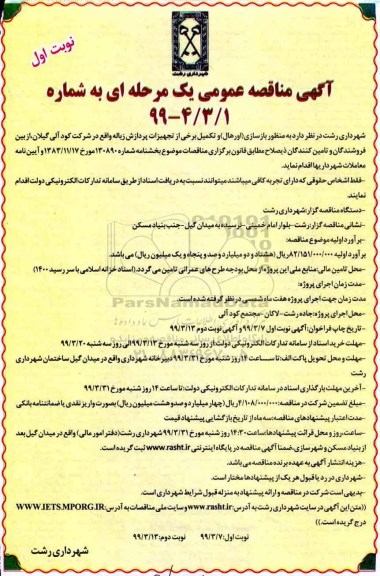 نوبت اول
شهرداری رشت
آگهی مناقصه عمومی یک مرحله ای به شماره
۹۹-۴/۳/۱
شهرداری رشت در نظر دارد به منظور بازسازی (اورهال) و تکمیل برخی از تجهیزات پردازش زباله واقع در شرکت کود آلی گیلان، از بین
فروشندگان و تامین کنندگان ذیصلاح مطابق قانون برگزاری مناقصات موضوع بخشنامه شماره ۱۳۰۸۹۰ مورخ ۱۳۸۳/۱۱/۱۷ و آیین نامه
معاملات شهرداریها اقدام نماید.
-فقط اشخاص حقوقی که دارای تجربه کافی میباشند میتوانند نسبت به دریافت اسناد از طریق سامانه تدارکات الکترونیکی دولت اقدام
نمایند.
-دستگاه مناقصه گزار: شهرداری رشت
-نشانی مناقصه گزار: رشت-بلوار امام خمینی -نرسیده به میدان گیل-جنب بنیاد مسکن
-برآورد اولیه موضوع مناقصه:
برآورد اولیه ۸۲/۱۵۱/۰۰۰/۰۰۰ ریال (هشتاد و دو میلیارد و صد و پنجاه و یک میلیون ریال) می باشد.
-محل تامین مالی: منابع ملی این پروژه از محل بودجه طرح های عمرانی تامین می گردد. (اسناد خزانه اسلامی با سر رسید ۱۴۰۰)
-مدت زمان اجرای پروژه:
مدت زمان جهت اجرای پروژه هفت ماه شمسی در نظر گرفته شده است.
-محل اجرای پروژه: جاده رشت-لاکان-مجتمع کود آلی
-تاریخ چاپ فراخوان: آگهی نوبت اول ۹۹/۳/۷ و آگهی نوبت دوم ۹۹/۳/۱۳
-مهلت خرید اسناد از سامانه تدارکات الکترونیکی دولت: از روز سه شنبه مورخ ۹۹/۳/۱۳ الی روز سه شنبه ۹۹/۳/۲۰
-مهلت و محل تحویل پاکت الف: تا ساعت ۱۴ روز شنبه مورخ ۹۹/۳/۳۱ دبیرخانه شهرداری واقع در میدان گیل ساختمان شهرداری
رشت
-آخرین مهلت بارگذاری اسناد در سامانه تدارکات الکترونیکی دولت: تا ساعت ۱۴ روز شنبه مورخ ۹۹/۳/۳۱
-مبلغ تضمین شرکت در مناقصه: ۴/۱۰۸/۰۰۰/۰۰۰ ریال (چهار میلیارد و صد و هشت میلیون ریال) بصورت واریز نقدی یا ضمانتنامه بانکی
-مدت اعتبار پیشنهادهای مناقصه: سه ماه از تاریخ بازگشایی پیشنهاد قیمت
-ساعت، روز و محل قرائت پیشنهادها: ساعت ۱۴:۳۰ روز شنبه مورخ ۹۹/۳/۳۱ شهرداری رشت (دفتر امور مالی) واقع در میدان گیل بعد
از بنیاد مسکن و شهرسازی. ضمنا آگهی مناقصه در پایگاه اینترنتی www.rasht.ir ثبت گردیده است.
-هزینه انتشار آگهی به عهده برنده مناقصه می باشد.
-شهرداری در رد یا قبول هر یک از پیشنهادها مختار است.
-بدیهی است شرکت در مناقصه و ارائه پیشنهاد به منزله قبول شرایط شهرداری است.
((متن این آگهی در سایت شهرداری رشت به آدرس: www.rasht.ir و سایت ملی مناقصات به آدرس: WWW.IETS.MPORG.IR
درج گردیده است.))
نوبت اول: ۹۹/۳/۷ نوبت دوم: ۹۹/۳/۱۳
شهرداری رشت